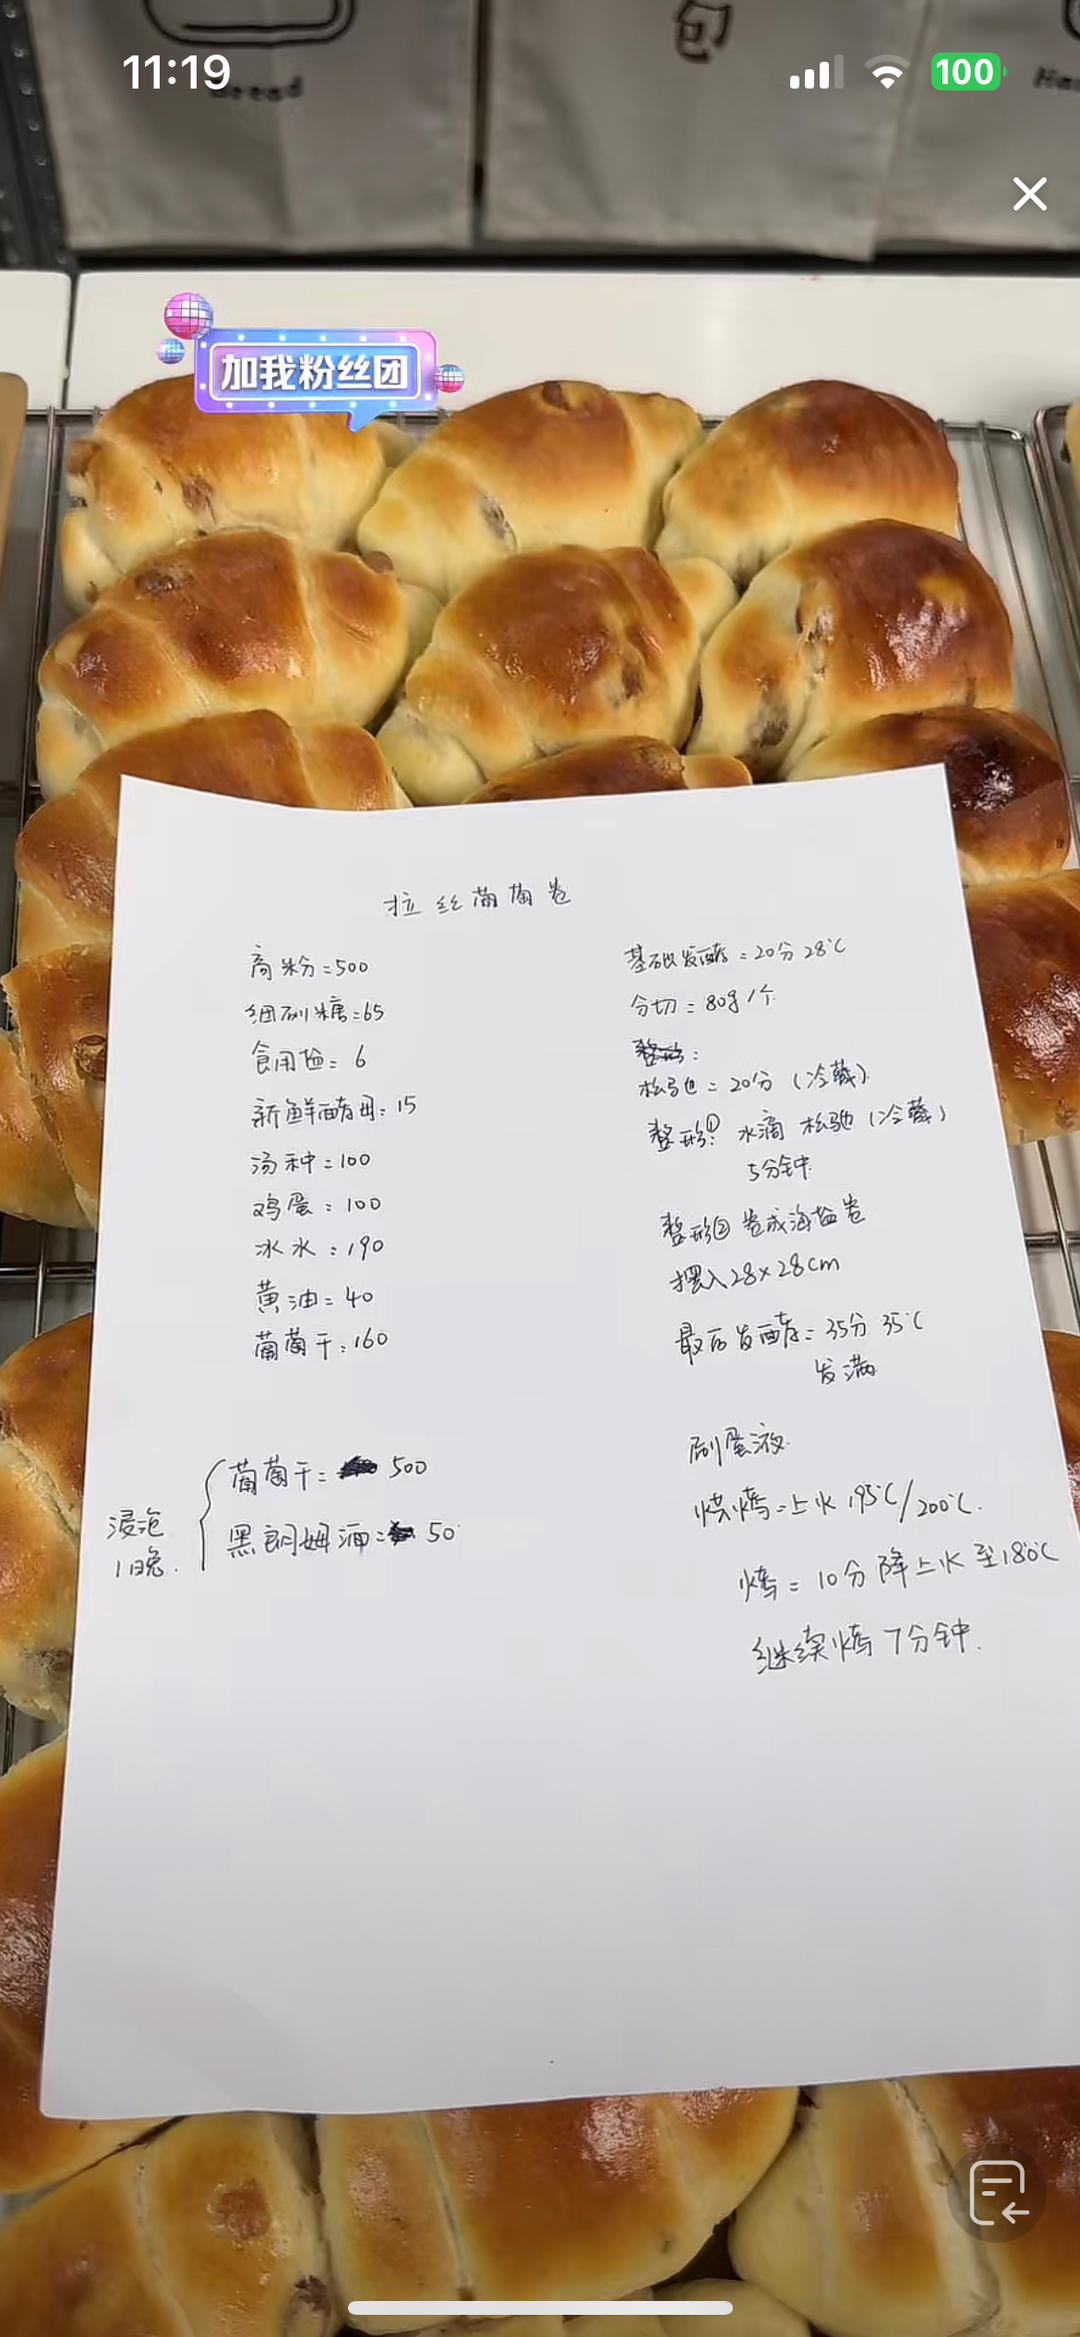 包
11:19
100
Bread
加我粉丝团
拉丝葡萄卷
高粉=500
细砂糖=65
食用盐=6
新鲜酵母=15
汤种=100
鸡蛋:100
冰水:190
黄油=40
葡萄干:160
浸泡
1晚.
葡萄干= 500
黑朗姆酒= 50
基础发酵=20分 28℃
分切=80g/个
整形:
松弛=20分(冷藏)
整形① 水滴 松弛(冷藏)
5分钟
整形② 卷成海盐卷
摆入28×28cm
最后发酵=35分 35℃
发满
刷蛋液
烘烤=上火195℃/200℃.
烤=10分降上火至180℃
继续烤7分钟.